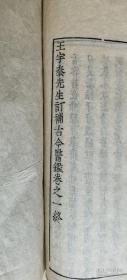 王宇泰先生訂補古今醫鑑卷之一終